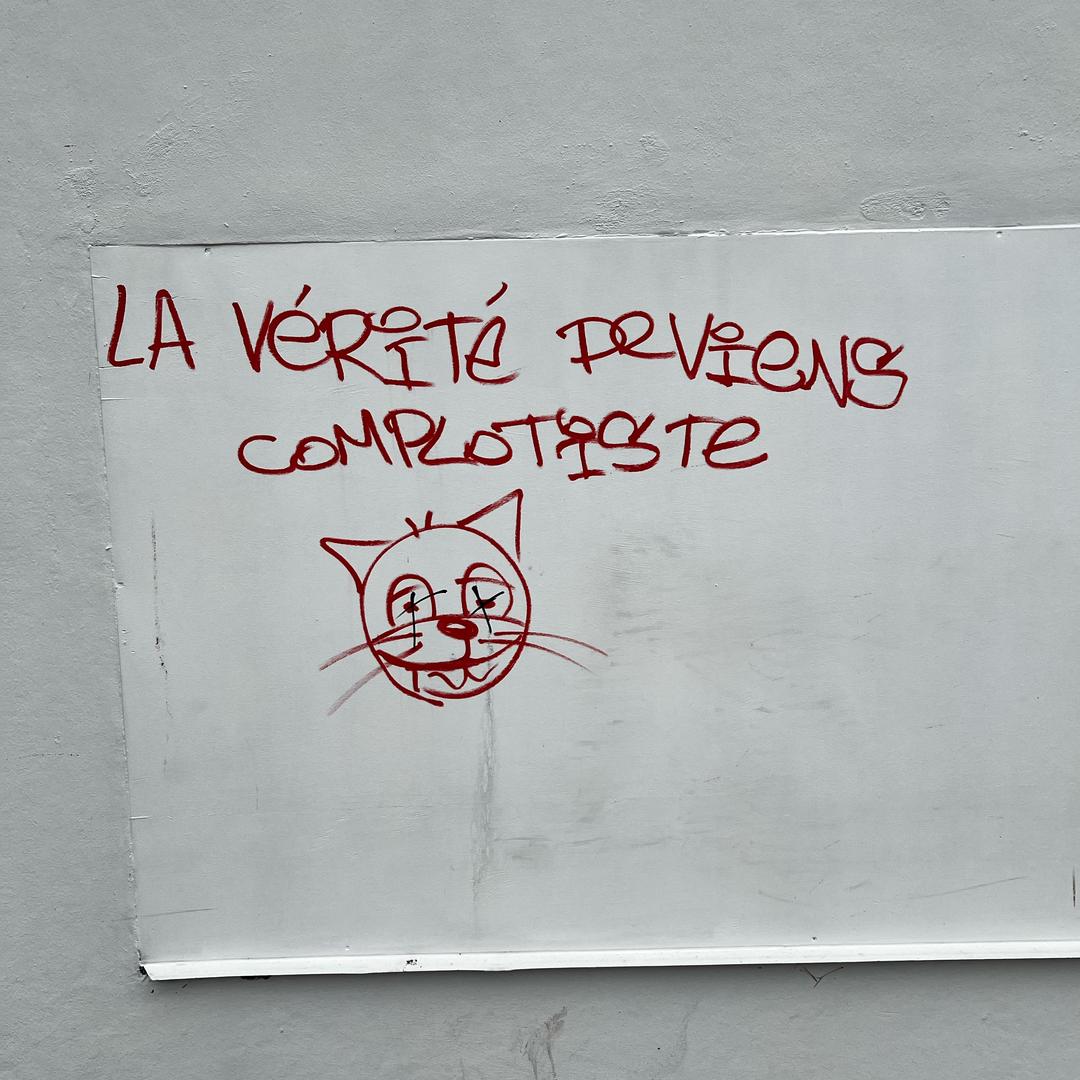 LA VÉRITÉ DEVIENS
COMPLOTISTE